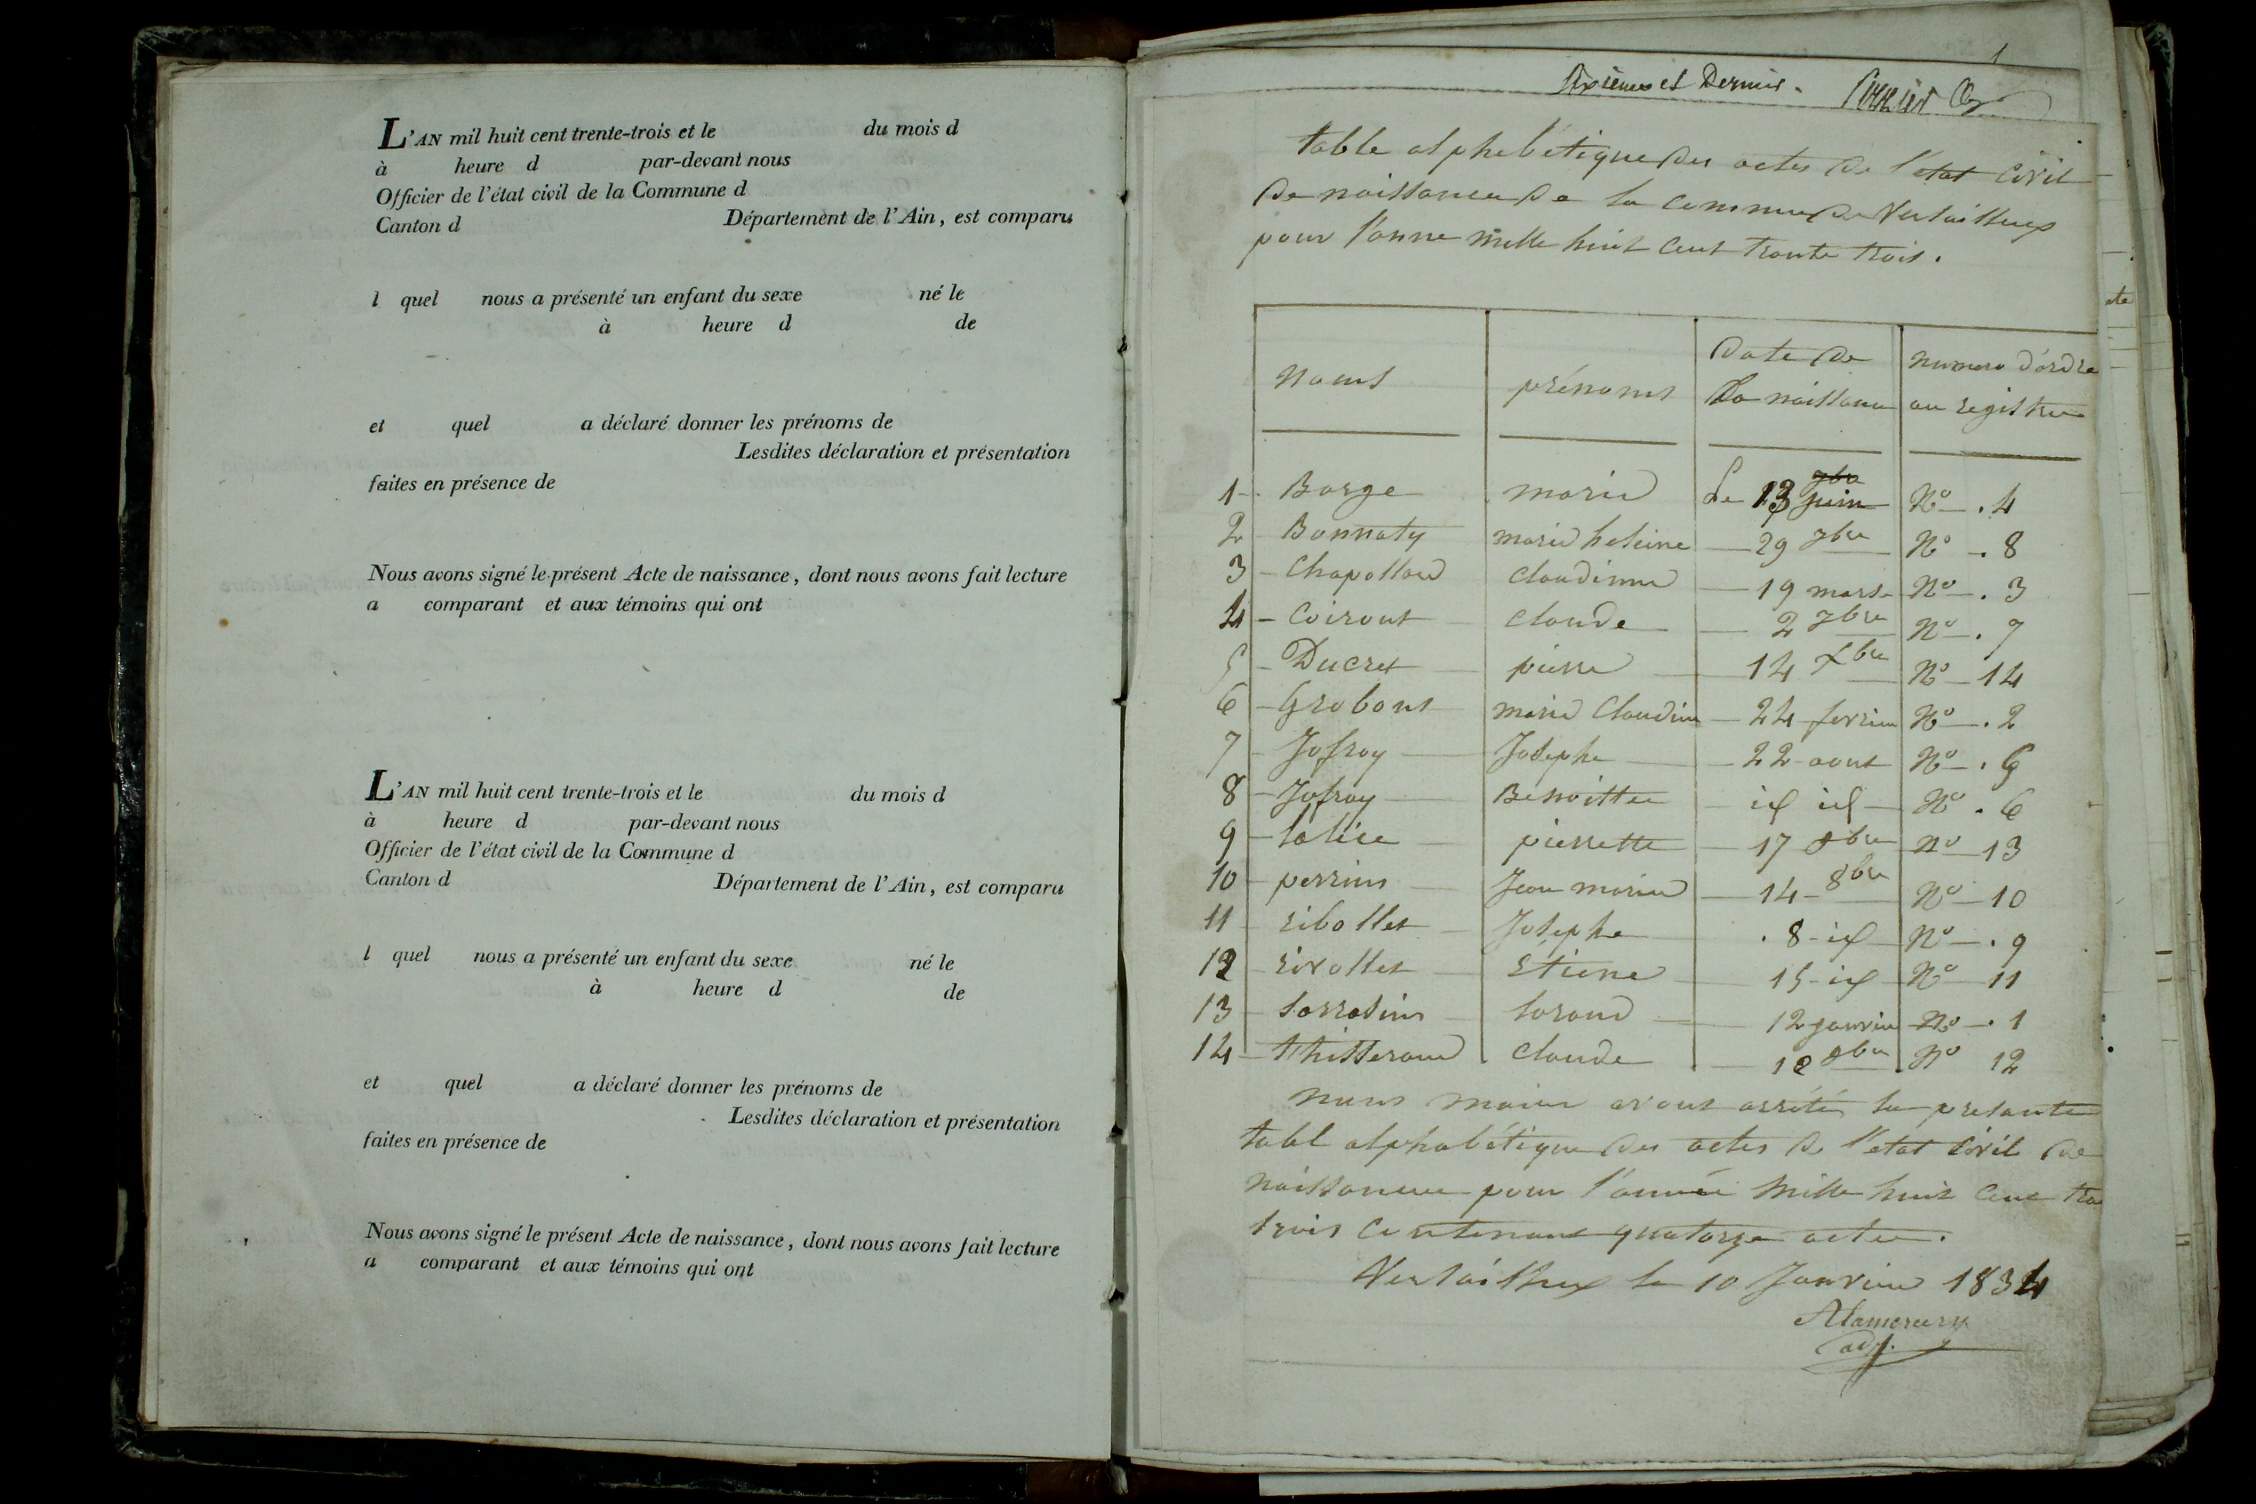 L'AN mil huit cent trente-trois et le du mois d
à heure d par-devant nous
Officier de l'état civil de la Commune d
Canton d Département de l'Ain, est comparu
l quel nous a présenté un enfant du sexe né le
à heure d de
et quel a déclaré donner les prénoms de
Lesdites déclaration et présentation
faites en présence de
Nous avons signé le présent Acte de naissance, dont nous avons fait lecture
a comparant et aux témoins qui ont
L'AN mil huit cent trente-trois et le du mois d
à heure d par-devant nous
Officier de l'état civil de la Commune d
Canton d Département de l'Ain, est comparu
l quel nous a présenté un enfant du sexe né le
à heure d de
et quel a déclaré donner les prénoms de
Lesdites déclaration et présentation
faites en présence de
Nous avons signé le présent Acte de naissance, dont nous avons fait lecture
a comparant et aux témoins qui ont
1
et Dernier.
table alphebétique des actes de l'etat civil
de naissance de la commune de Versailleux
pour l'anne mille huit cent trante trois.
noms prénoms date de la naissance numero d'ordre au registre
1 - Barge marie Le 13 juin No . 4
2 - Bonnaty marie heleine 29 7bre No . 8
3 - Chapolland claudinne 19 mars No . 3
4 - Coiront claude 2 7bre No . 7
5 - Ducret pierre 14 Xbre No 14
6 - Grobont marie Claudine 24 fevrier No . 2
7 - Jofray Josephe 22 aout No . 5
8 - Jofray Benoitte id id No . 6
9 - Lalice pierrette 17 9bre No 13
10 - perrin Jean marie 14 8bre No 10
11 - ribollet Josephe . 8 id No . 9
12 - rivollet Etiene 15 id No 11
13 - Sarrasin 12 janvier No . 1
14 - thisserand claude 12 9bre No 12
nous maire avons arrêtés la presante
tabl alphabétique des actes de l'etat civil de
naissance pour l'année mille huit cent tra
trois contenant quatorze actes.
Versailleux le 10 Janvier 1834
adj.